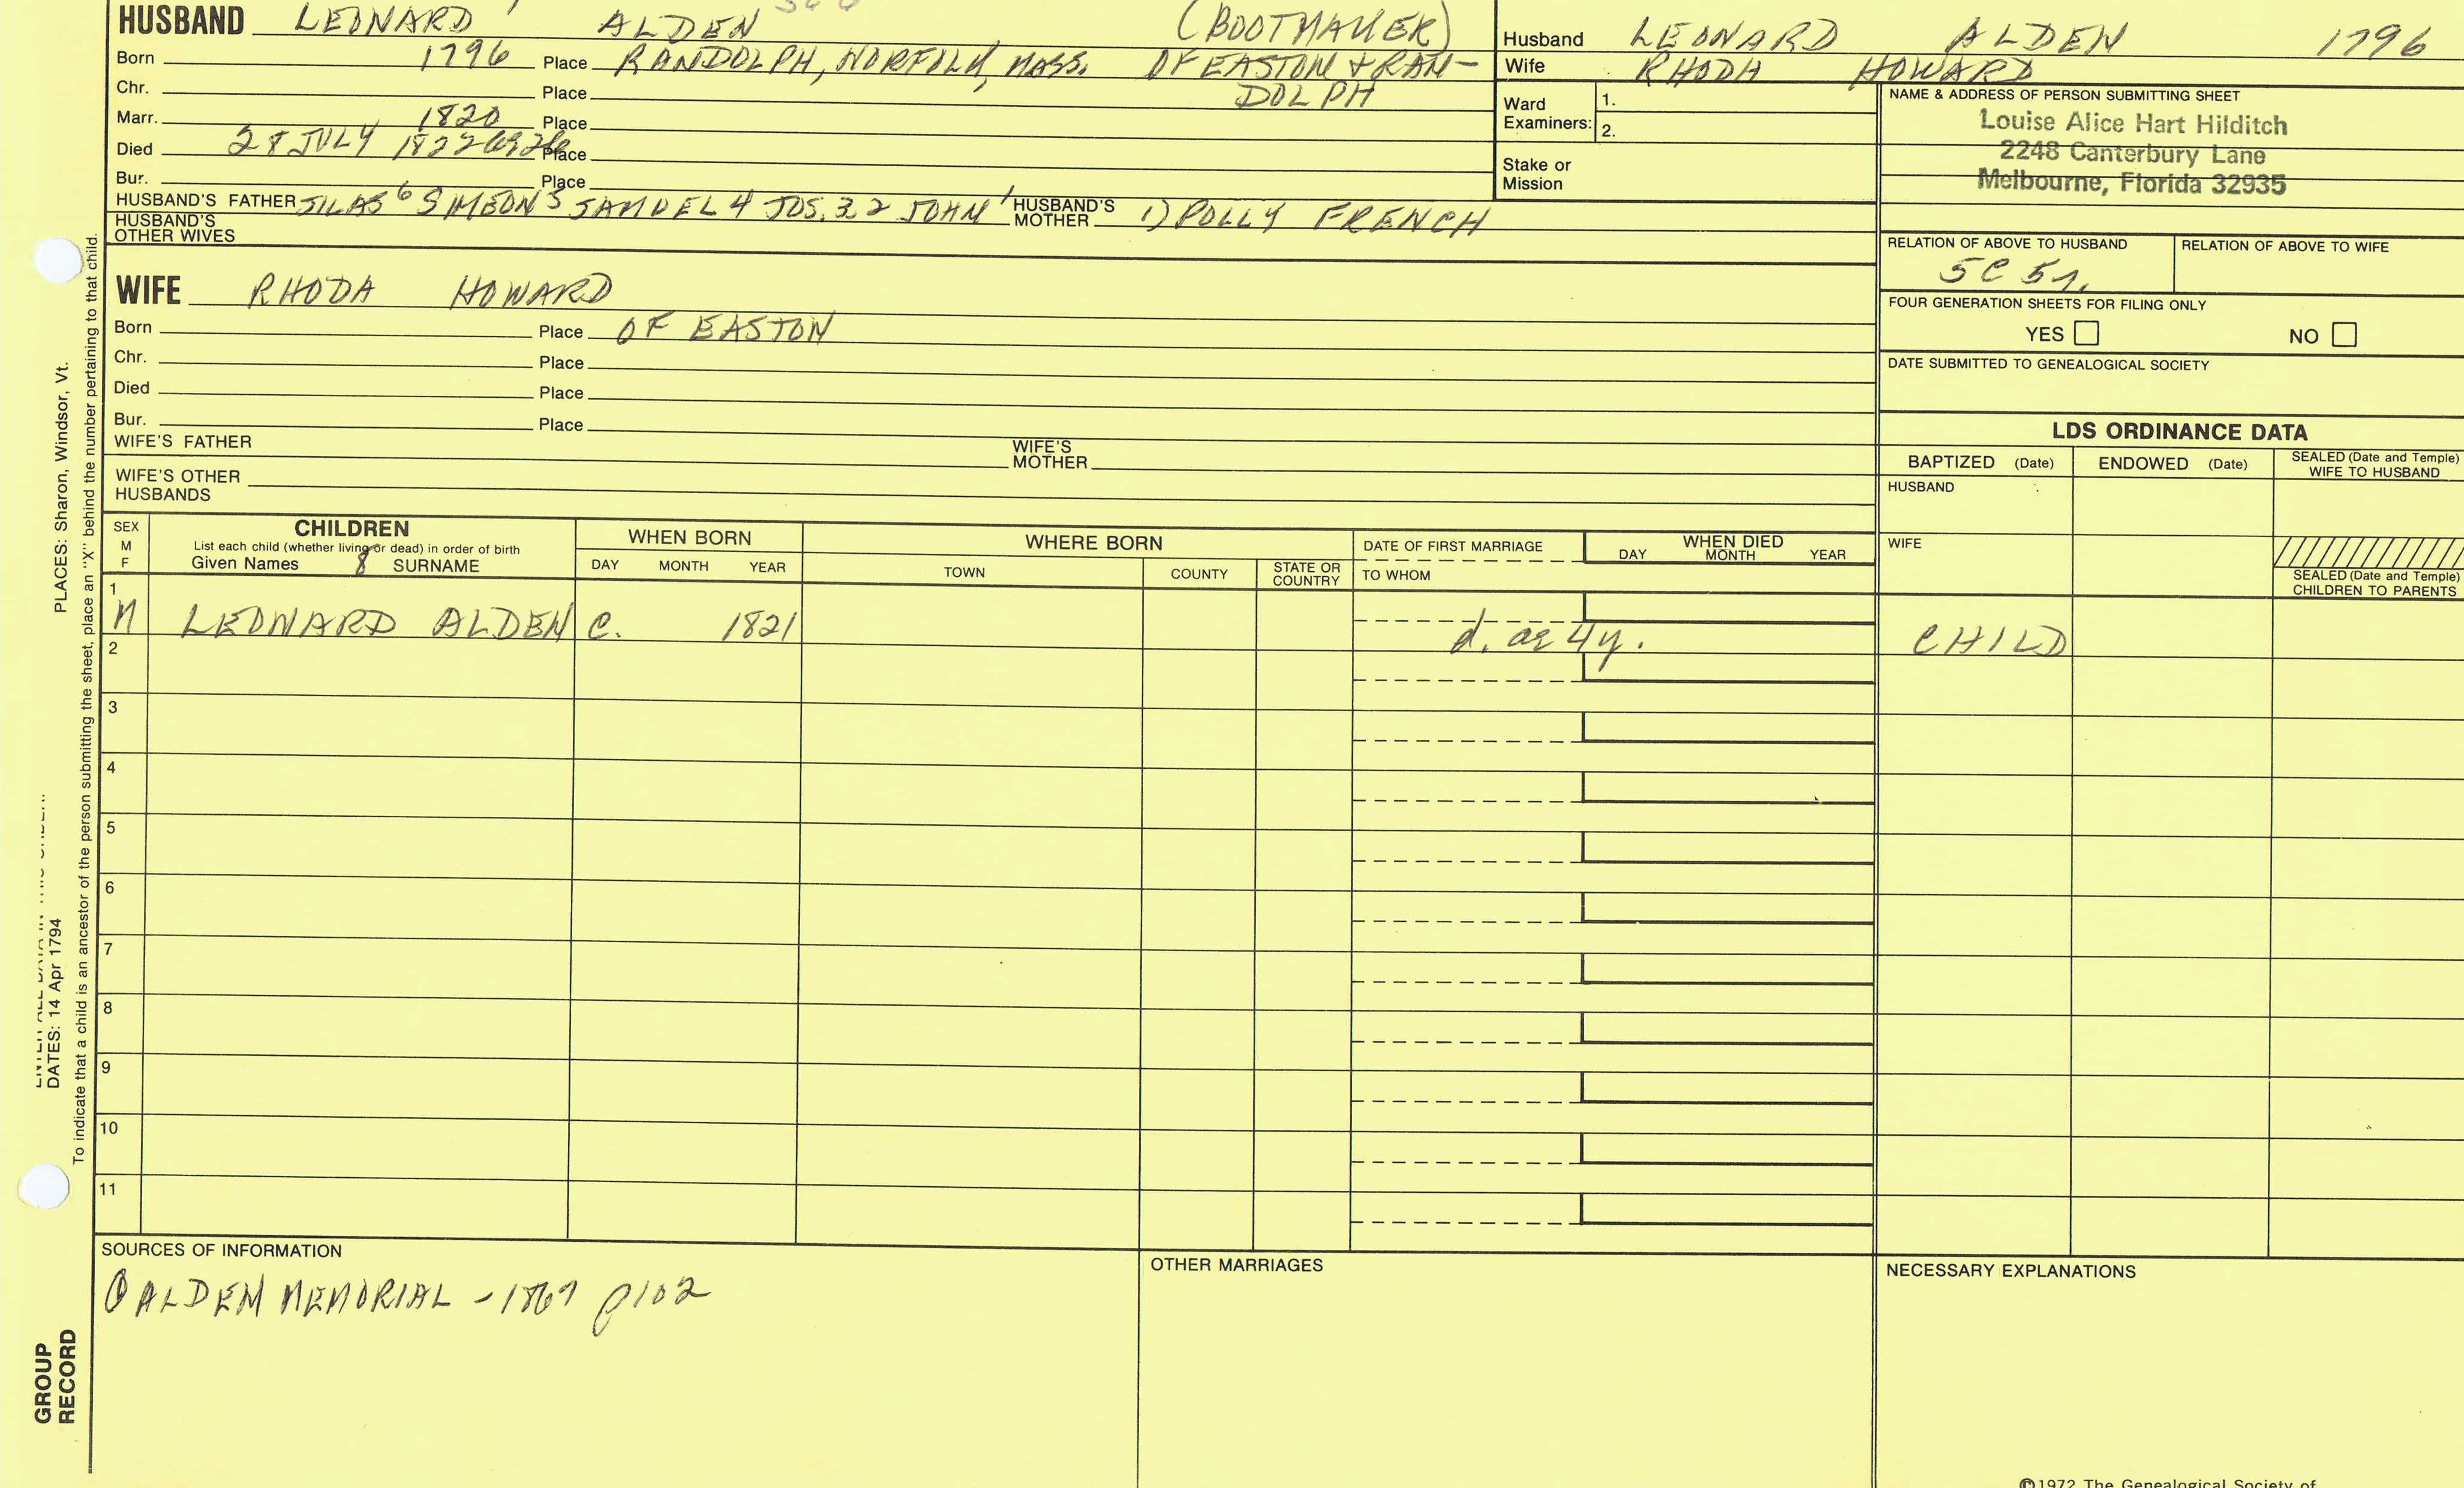 HUSBAND LEONARD ALDEN (BOOTMAKER)
Born 1796 Place RANDOLPH, NORFOLK, MASS. OF EASTON & RAN-
DOLPH
Chr. Place
Marr. 1820 Place
Died 28 JULY 1822 Place
Bur. Place
HUSBAND'S FATHER SILAS 6 SIMEON 5 SAMUEL 4 JOS. 3, 2 JOHN 1 HUSBAND'S MOTHER 1) POLLY FRENCH
HUSBAND'S OTHER WIVES
WIFE RHODA HOWARD
Born Place OF EASTON
Chr. Place
Died Place
Bur. Place
WIFE'S FATHER WIFE'S MOTHER
WIFE'S OTHER HUSBANDS
Husband LEONARD ALDEN 1796
Wife RHODA HOWARD
Ward Examiners: 1.
2.
Stake or Mission
NAME & ADDRESS OF PERSON SUBMITTING SHEET
Louise Alice Hart Hilditch
2248 Canterbury Lane
Melbourne, Florida 32935
RELATION OF ABOVE TO HUSBAND RELATION OF ABOVE TO WIFE
5C 5r.
FOUR GENERATION SHEETS FOR FILING ONLY
YES NO
DATE SUBMITTED TO GENEALOGICAL SOCIETY
LDS ORDINANCE DATA
BAPTIZED (Date) ENDOWED (Date) SEALED (Date and Temple) WIFE TO HUSBAND
HUSBAND
WIFE
SEALED (Date and Temple) CHILDREN TO PARENTS
SEX M F
CHILDREN
List each child (whether living or dead) in order of birth
Given Names 8 SURNAME
WHEN BORN
DAY MONTH YEAR
WHERE BORN
TOWN COUNTY STATE OR COUNTRY
DATE OF FIRST MARRIAGE
TO WHOM
WHEN DIED
DAY MONTH YEAR
1
M LEONARD ALDEN C. 1821 d. ae 4y. CHILD
2
3
4
5
6
7
8
9
10
11
SOURCES OF INFORMATION
ALDEN MEMORIAL - 1867 p102
OTHER MARRIAGES
NECESSARY EXPLANATIONS
©1972 The Genealogical Society of
PLACES: Sharon, Windsor, Vt.
DATES: 14 Apr 1794
To indicate that a child is an ancestor of the person submitting the sheet, place an "X" behind the number pertaining to that child.
GROUP
RECORD